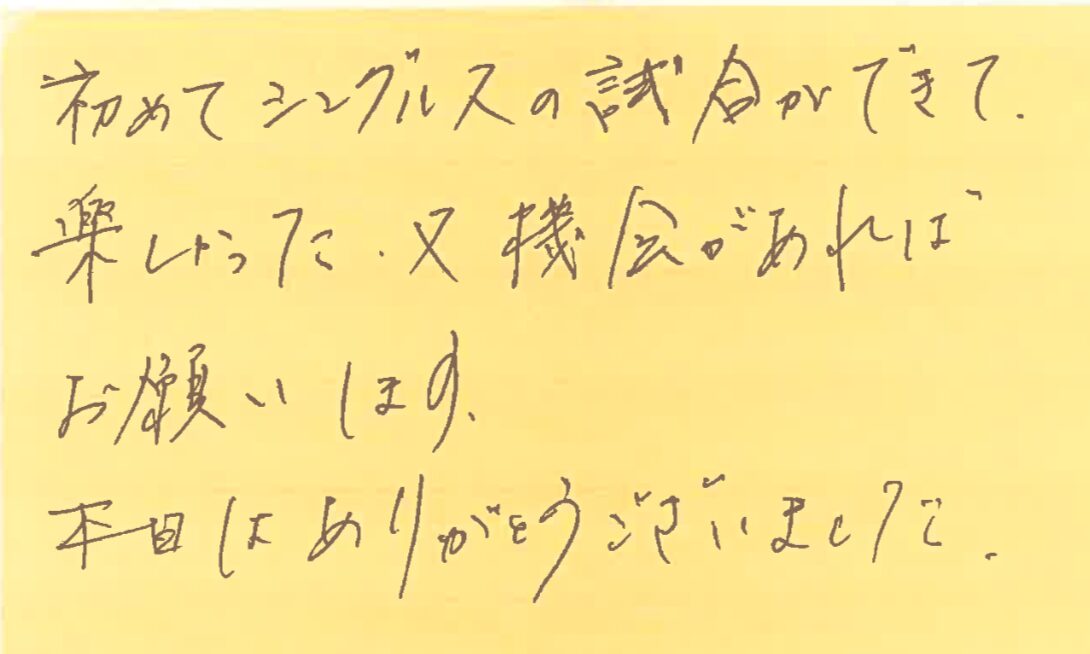 初めてシングルスの試合ができて、
楽しかった。又機会があれば
お願いします。
本日はありがとうございました。